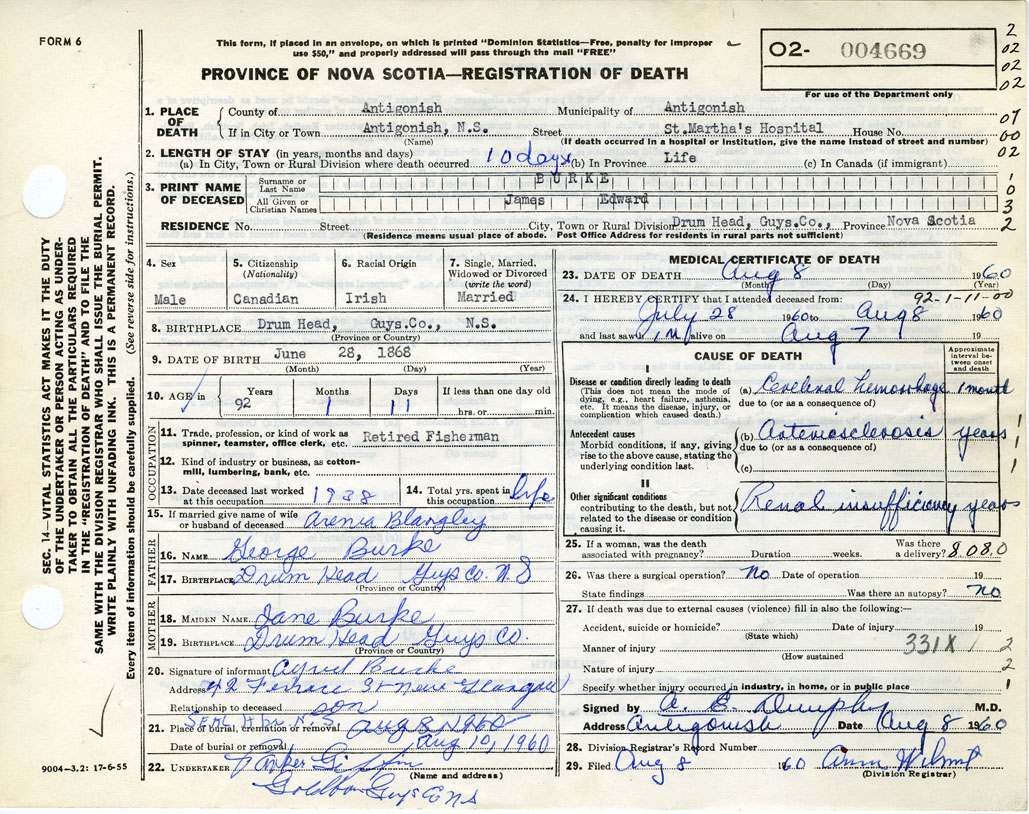 FORM 6
This form, if placed in an envelope, on which is printed "Dominion Statistics—Free, penalty for improper
use $50," and properly addressed will pass through the mail "FREE"
PROVINCE OF NOVA SCOTIA—REGISTRATION OF DEATH
O2- 004669
For use of the Department only
2
02
02
02
07
00
02
1
0
3
2
SEC. 14—VITAL STATISTICS ACT MAKES IT THE DUTY
OF THE UNDERTAKER OR PERSON ACTING AS UNDER-
TAKER TO OBTAIN ALL THE PARTICULARS REQUIRED
IN THE "REGISTRATION OF DEATH" AND TO FILE THE
SAME WITH THE DIVISION REGISTRAR WHO SHALL ISSUE THE BURIAL PERMIT.
WRITE PLAINLY WITH UNFADING INK. THIS IS A PERMANENT RECORD.
Every item of information should be carefully supplied. (See reverse side for instructions.)
1. PLACE OF DEATH
County of Antigonish Municipality of Antigonish
If in City or Town Antigonish, N.S. Street St.Martha's Hospital House No.
(Name) (If death occurred in a hospital or institution, give the name instead of street and number)
2. LENGTH OF STAY (in years, months and days)
(a) In City, Town or Rural Division where death occurred 10 days (b) In Province Life (c) In Canada (if immigrant)
3. PRINT NAME OF DECEASED
Surname or Last Name BURKE
All Given or Christian Names James Edward
RESIDENCE No. Street City, Town or Rural Division Drum Head, Guys.Co., Province Nova Scotia
(Residence means usual place of abode. Post Office Address for residents in rural parts not sufficient)
4. Sex 5. Citizenship (Nationality) 6. Racial Origin 7. Single, Married, Widowed or Divorced (write the word)
Male Canadian Irish Married
8. BIRTHPLACE Drum Head, Guys.Co., N.S.
(Province or Country)
9. DATE OF BIRTH June 28, 1868
(Month) (Day) (Year)
10. AGE in Years Months Days If less than one day old
92 1 11 hrs. or min.
OCCUPATION
11. Trade, profession, or kind of work as spinner, teamster, office clerk, etc. Retired Fisherman
12. Kind of industry or business, as cotton-
mill, lumbering, bank, etc.
13. Date deceased last worked at this occupation 1938 14. Total yrs. spent in this occupation life
15. If married give name of wife or husband of deceased Arenia Blangley
FATHER
16. NAME George Burke
17. BIRTHPLACE Drum Head Guys Co. N.S
(Province or Country)
MOTHER
18. MAIDEN NAME Jane Burke
19. BIRTHPLACE Drum Head Guys Co.
(Province or Country)
20. Signature of informant Alfred Burke
Address 42 Terrace St New Glasgow
Relationship to deceased son
SEAL HBR. N.S
21. Place of burial, cremation or removal Aug 8, 1960
Date of burial or removal Aug 10, 1960
22. UNDERTAKER Parker Giffin
(Name and address)
Goldboro Guys Co NS
9004—3.2: 17-6-55
MEDICAL CERTIFICATE OF DEATH
23. DATE OF DEATH Aug 8 1960
(Month) (Day) (Year)
92-1-11-00
24. I HEREBY CERTIFY that I attended deceased from:
July 28 1960 to Aug 8 1960
and last saw him alive on Aug 7 19
CAUSE OF DEATH
Approximate interval between onset and death
I
Disease or condition directly leading to death
(This does not mean the mode of dying, e.g., heart failure, asthenia, etc. It means the disease, injury, or complication which caused death.)
(a) Cerebral hemorrhage 1 month
due to (or as a consequence of)
Antecedent causes
Morbid conditions, if any, giving rise to the above cause, stating the underlying condition last.
(b) Arteriosclerosis years
due to (or as a consequence of)
(c)
II
Other significant conditions contributing to the death, but not related to the disease or condition causing it.
Renal insufficiency years
1
1
1
25. If a woman, was the death associated with pregnancy? Duration weeks. Was there a delivery? 8080
26. Was there a surgical operation? No Date of operation 19
State findings Was there an autopsy? no
27. If death was due to external causes (violence) fill in also the following:—
Accident, suicide or homicide? Date of injury 19
(State which)
Manner of injury 331X 1 2
(How sustained)
Nature of injury 2
Specify whether injury occurred in industry, in home, or in public place 1
Signed by A. E. Dunphy M.D.
Address Antigonish Date Aug 8 1960
28. Division Registrar's Record Number
29. Filed Aug 8 1960 Ann
(Division Registrar)